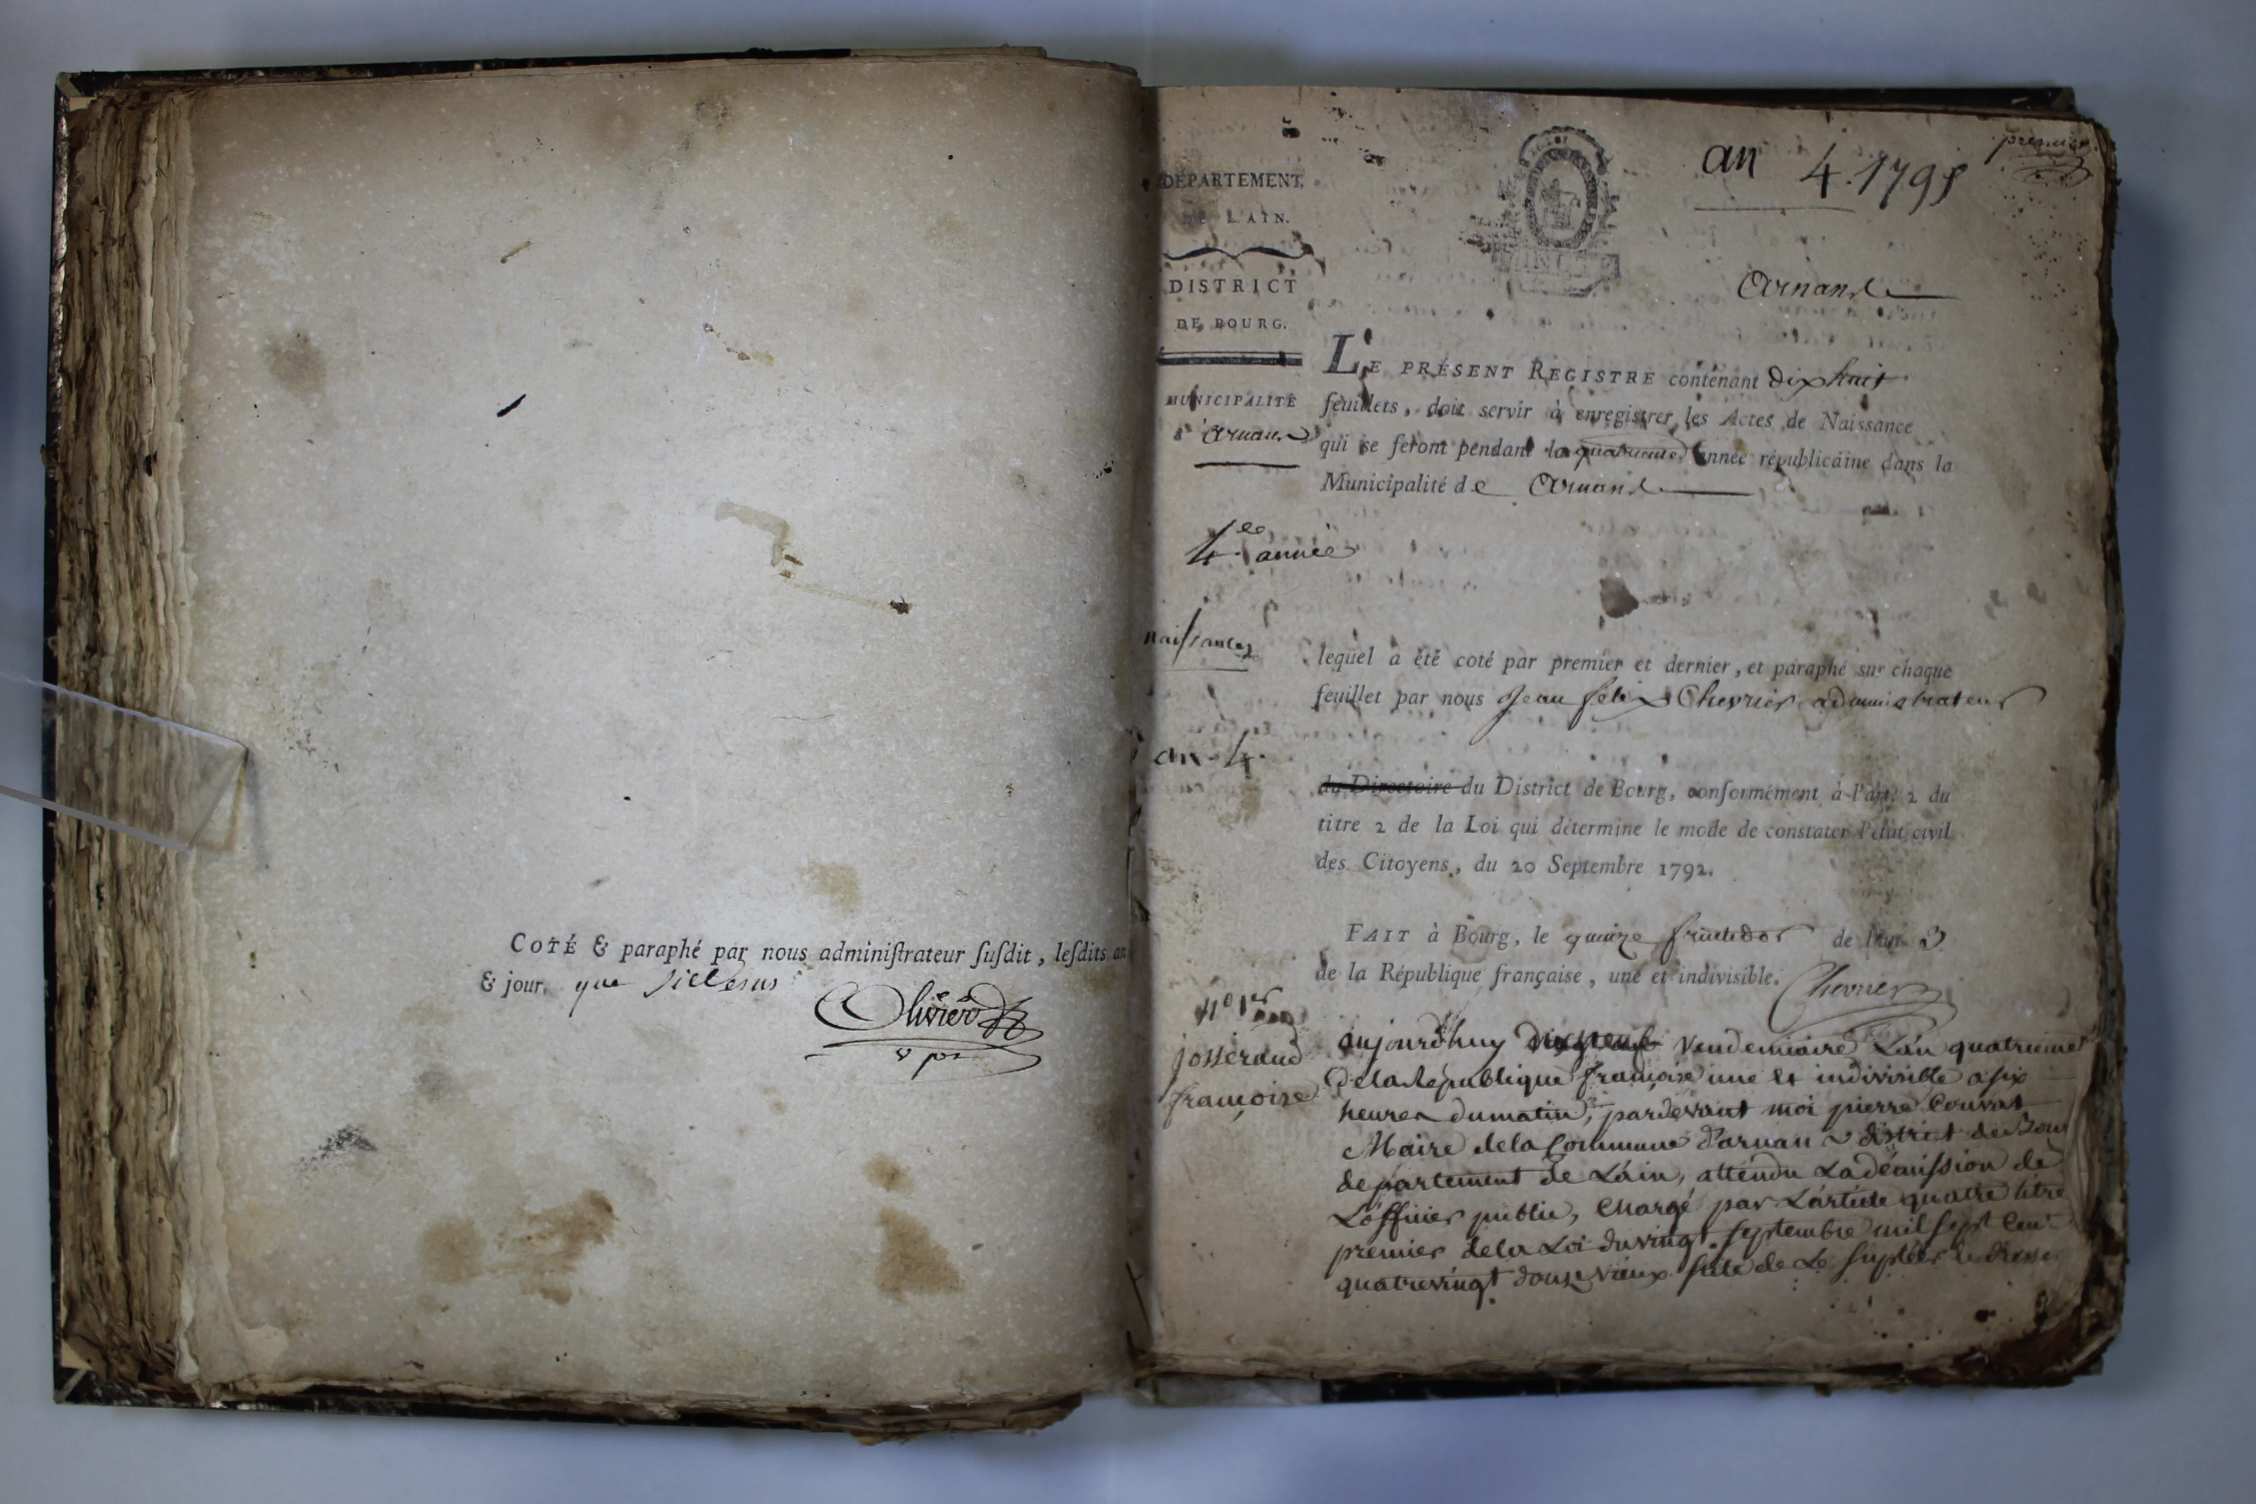 COTÉ & paraphé par nous administrateur susdit, lesdits an
& jour. que
Olivier
v pt
DEPARTEMENT
DE L'AIN.
DISTRICT
DE BOURG.
MUNICIPALITÉ
d'arnans
4ee année
naissances
an 4
an 4. 1795
premier
Arnans
LE PRÉSENT REGISTRE contenant dix huit
feuillets, doit servir à enregistrer les Actes de Naissance
qui se feront pendant la quatrieme année républicaine dans la
Municipalité de Arnans
lequel a été coté par premier et dernier, et paraphé sur chaque
feuillet par nous Jean felix Chevrier administrateur
du Directoire du District de Bourg, conformément à l'art. 2 du
titre 2 de la Loi qui détermine le mode de constater l'état civil
des Citoyens, du 20 Septembre 1792.
FAIT à Bourg, le quinze fructidor de l'an 3
de la République française, une et indivisible.
Chevrier
N° 1er
josserand
françoise
aujourdhuy dixneuf vendemiaire L'an quatrieme
de la République françoise une et indivisible a six
heures du matin, pardevant moi pierre Couvat
Maire de la Commune d'arnans district de Bour
departement de L'ain, attendu La démission de
L'officier public, Chargé par L'article quatre titre
premier de la Loi du vingt septembre mil sept cent
quatrevingt douze vieux stile de Le supléer